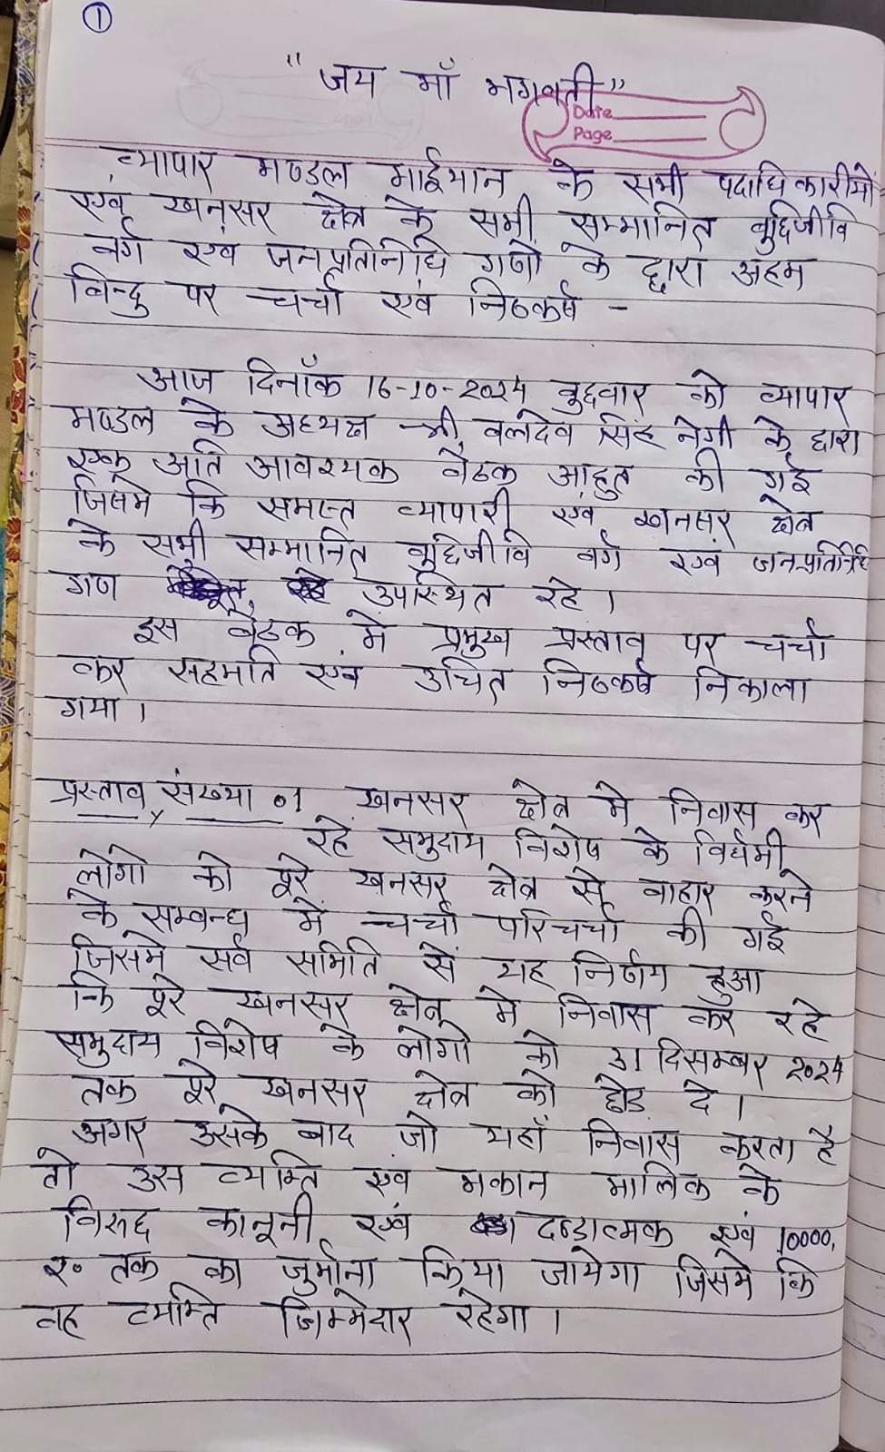 ①
"जय माँ भगवती"
Date
Page
व्यापार मण्डल माईथान के सभी पदाधिकारीयों
एवं खनसर क्षेत्र के सभी सम्मानित बुद्धिजीवि
वर्ग एवं जनप्रतिनिधि गणों के द्वारा अहम
बिन्दु पर चर्चा एवं निष्कर्ष -
आज दिनाँक 16-10-2024 बुद्दवार को व्यापार
मण्डल के अध्यक्ष श्री बलदेव सिंह नेगी के द्वारा
एक अति आवश्यक बैठक आहुत की गई
जिसमे कि समस्त व्यापारी एवं खनसर क्षेत्र
के सभी सम्मानित बुद्धिजीवि वर्ग एवं जनप्रतिनिधि
गण उपस्थित रहे।
इस बैठक मे प्रमुख प्रस्ताव पर चर्चा
कर सहमति एवं उचित निष्कर्ष निकाला
गया।
प्रस्ताव संख्या 01 खनसर क्षेत्र मे निवास कर
रहे समुदाय विशेष के विर्धमी
लोगो को पूरे खनसर क्षेत्र से बाहार करने
के सम्बन्ध में चर्चा परिचर्चा की गई
जिसमे सर्व समिति से यह निर्णय हुआ
कि पूरे खनसर क्षेत्र मे निवास कर रहे
समुदाय विशेष के लोगो को 31 दिसम्बर 2024
तक पूरे खनसर क्षेत्र को छोड़ दे।
अगर उसके बाद जो यहाँ निवास करता है
तो उस व्यक्ति एवं मकान मालिक के
विरुद्द कानूनी एवं दण्डात्मक एवं 10000,
रु० तक का जुर्माना किया जायेगा जिसमे कि
वह व्यक्ति जिम्मेदार रहेगा।